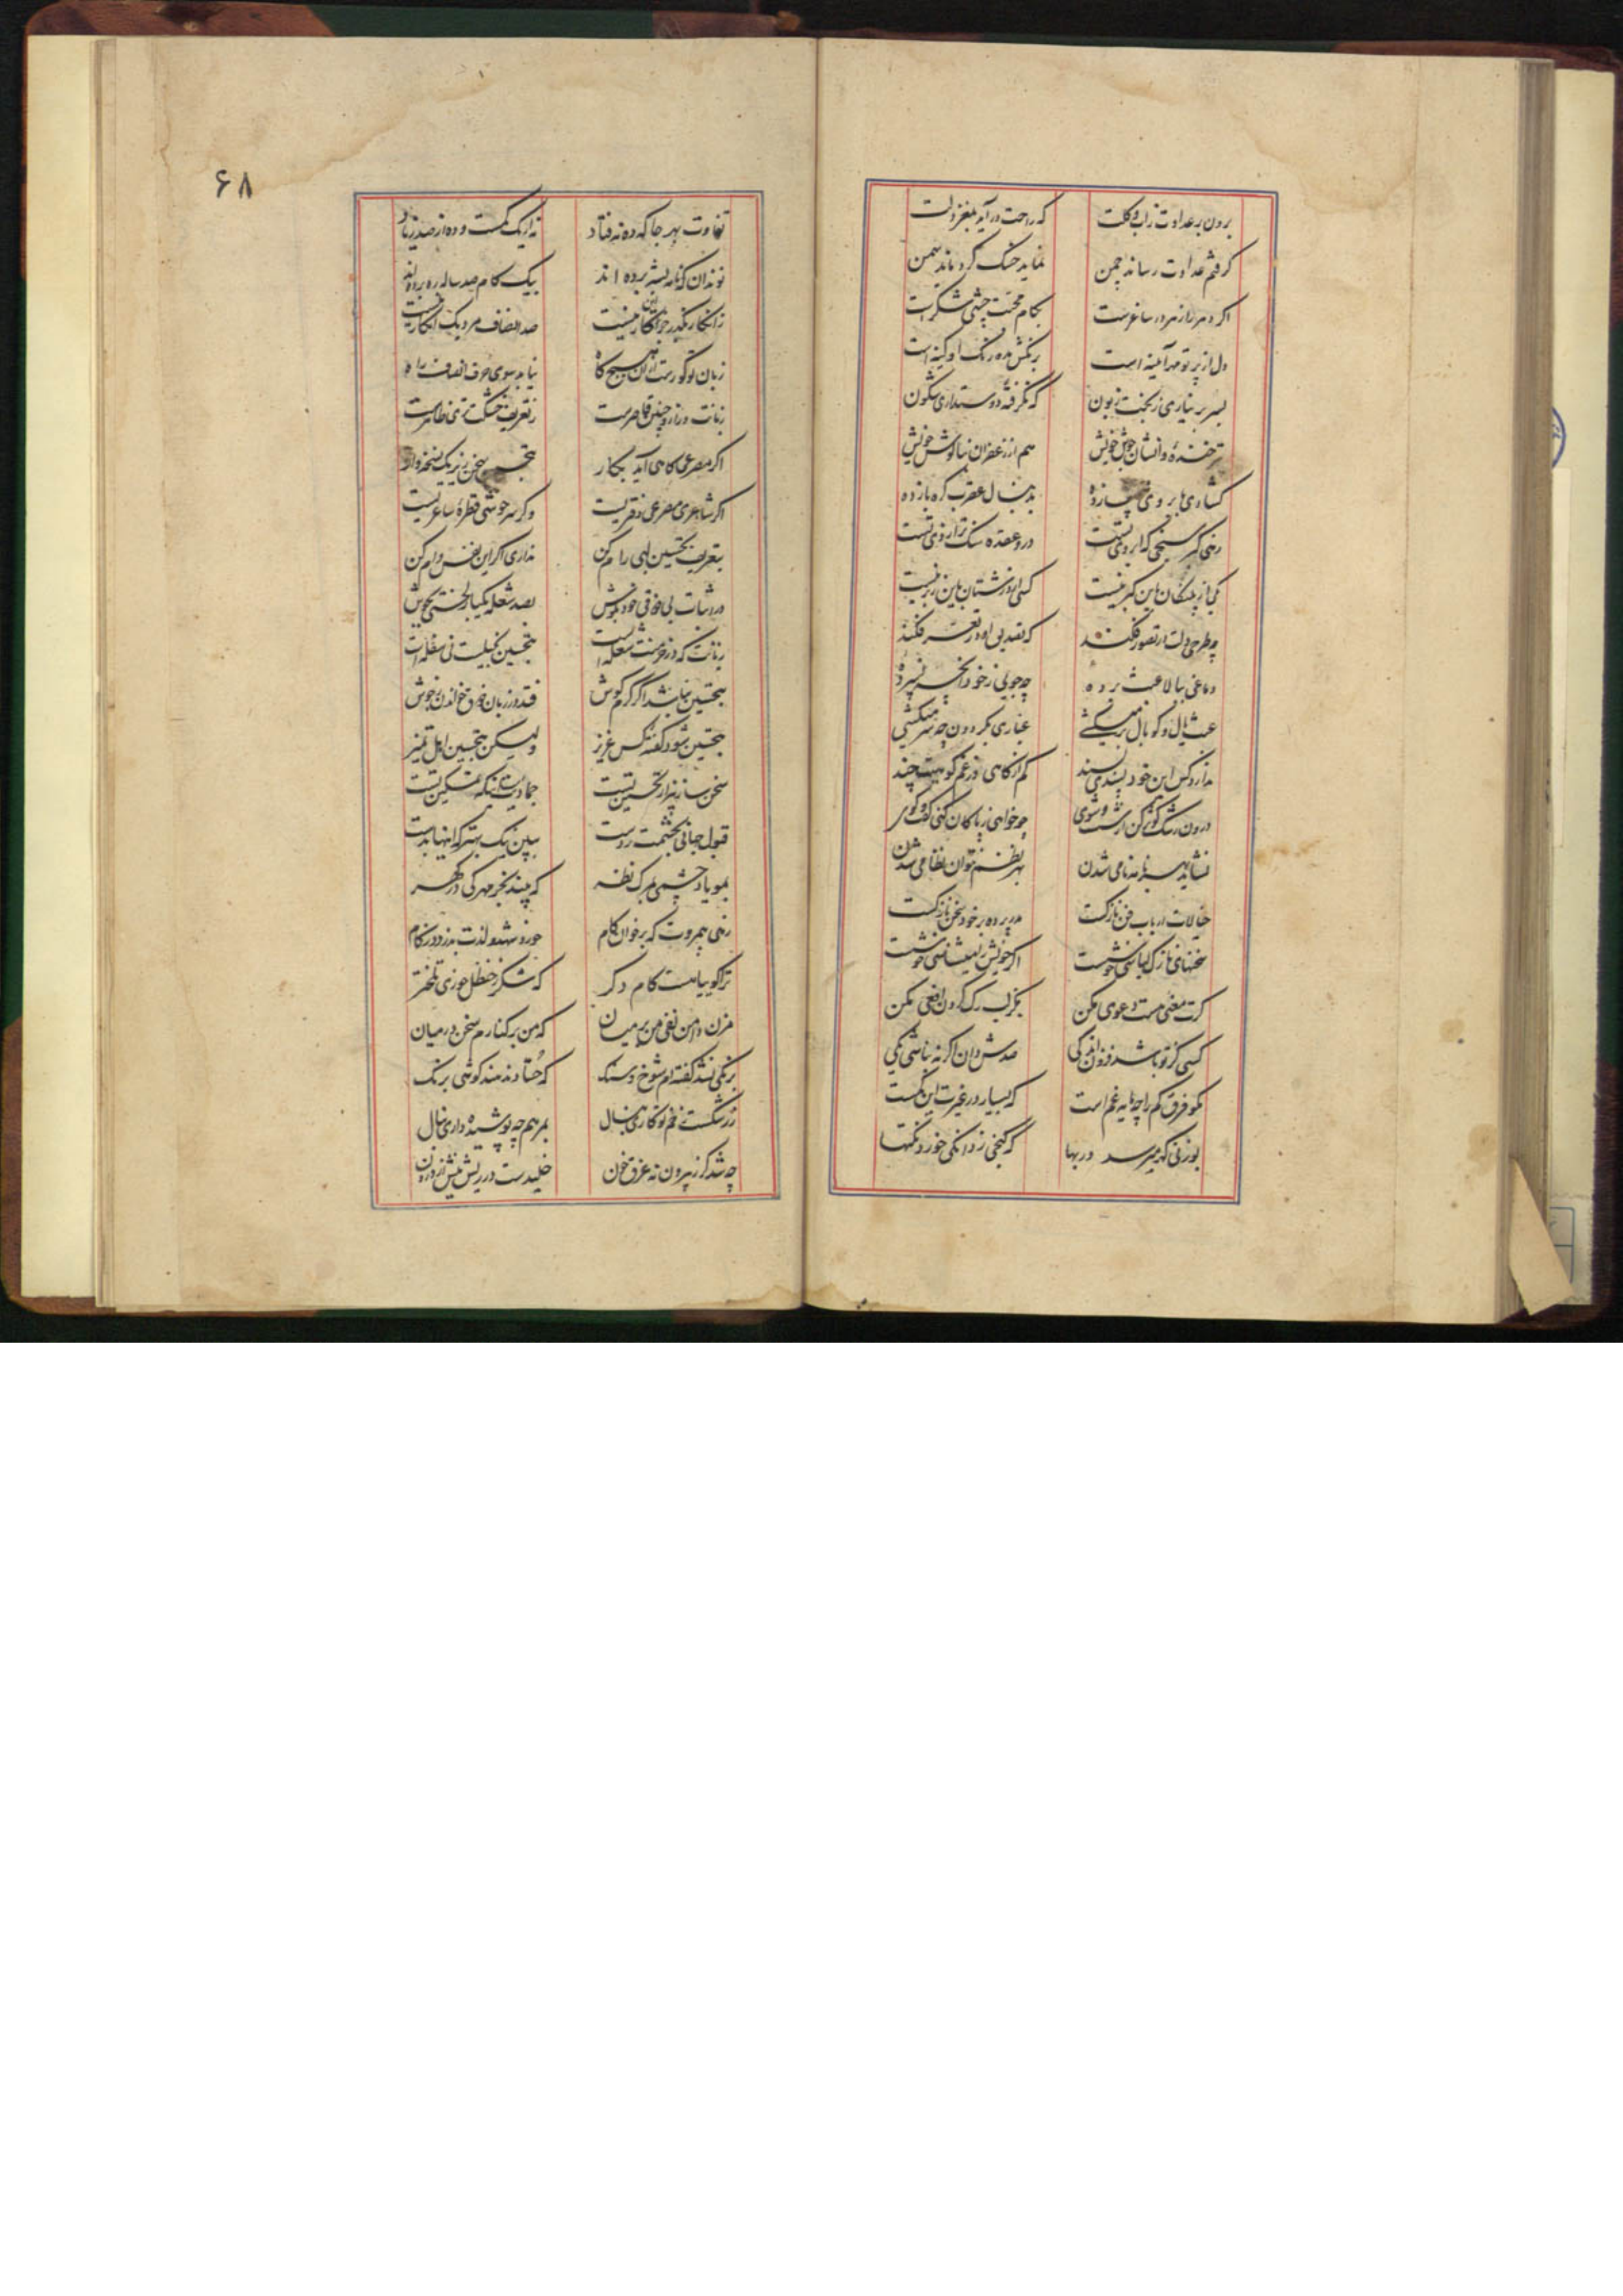 برون بر عداوت ز آب و گلت که راحت درآید بمغز دلت
گر قم عداوت رساند چمن نماید خسک گرد ماند سمن
اگر دهر را زهر در ساغرست بکام محبت چشی شکرست
دل از پرتو مهر آئینه است زنگش مده زنگ او کینه است
بسر بر نیاری ز بخت زبون که نگرفته دوستداری شگون
هم از زعفران بناگوش خویش
گشادی بابروی بدنبال عقرب گره باز ده
زهی کبر سنجی که ابروی تست درو عقده سنگ ترازوی تست
یکی از پلنگان باین کبر نیست کسی از درشتان باین زبر نیست
دماغی ببالا عبث برده چه جویی ز خود
عبث یال و کوپال بر میکشی غباری بگردون چه سر میکشی
ندارد کس این خود پسندی پسند کم از کاهی از غم کوهیت چند
درون رشک کوثر کن از شست و شوی چو خواهی ز پاکان کنی گفت و گوی
نشاید بهر نامه نامی شدن بهر نظم نتوان نظامی شدن
خیالات ارباب فن نازکست مدر پرده بر خود سخن نازکست
سخنهای نازک لباسی خوشست اگر خویش را میشناسی خوشست
گرت معنی هست دعوی مکن بگز لب رگ گردن افعی مکن
کسی کز تو باشد فزون اندکی صدش دان اگر نه نباشی یکی
مگو فرق کم را چه مایه غم است که بسیار در غیرت این کمست
بوزنی گهر میرسد در بها که گنجی ز دانگی خورد نکتها
۶۸
تفاوت بهر جا که ده نه فتاد نه از یک کمست و ده از صد زیاد
تو ندان که نامه بشبی برده اند بیک گام صد ساله ره برده اند
ز انکار بگذر جز انکار نیست صد انصاف مرد یک انکار نیست
زبان تو گو رست ازان هیچ گاه نیاید بسوی حرف انصاف راه
زبانت دراز و چنین قاصرست ز تعریف خشکت تری ظاهرست
اگر مصرعی گاهی آید بکار
اگر شاعری مصرعی دفتریست وگر سرخوشی قطره ساغریست
بتعریف تحسین لبی رام کن نداری اگر این نفس وام کن
در اثبات بی ذوقی خود مکوش بصد شعله یکبار لختی بجوش
زبانت که در خرمنت شعله است بتحسین بخیلیست نی سفله است
بتحسین نباشد اگر گرم گوش فتد در زبان ذوق خواندن ز جوش
بتحسین شود گفته کس عزیز ولیکن بتحسین اهل تمیز
سخن ساز زیر از تحسین تست جمادیست اینکه تمکین تست
قبول جهانی بچشمت ردست ببین نیک بهتر که اینها بدست
که بیند بجز مهرگی در گهر
زهی بیمروت که بر خوان کام خورد شهد و لذت بدزدد ز کام
ترا گوییا هست کام دگر که شکر ز حنظل خوری تلختر
مزن دامن نفی من بر میان که من بر کنارم سخن در میان
برنگی نشد گفته ام شوخ و شنگ که حنا نهد پند گوشی برنگ
ز رشکست زخم تو کاری بنال بمرهم چه پوشیده داری منال
چه شد کز برون نه غرق خون خلیدست در ریش نیش از درون